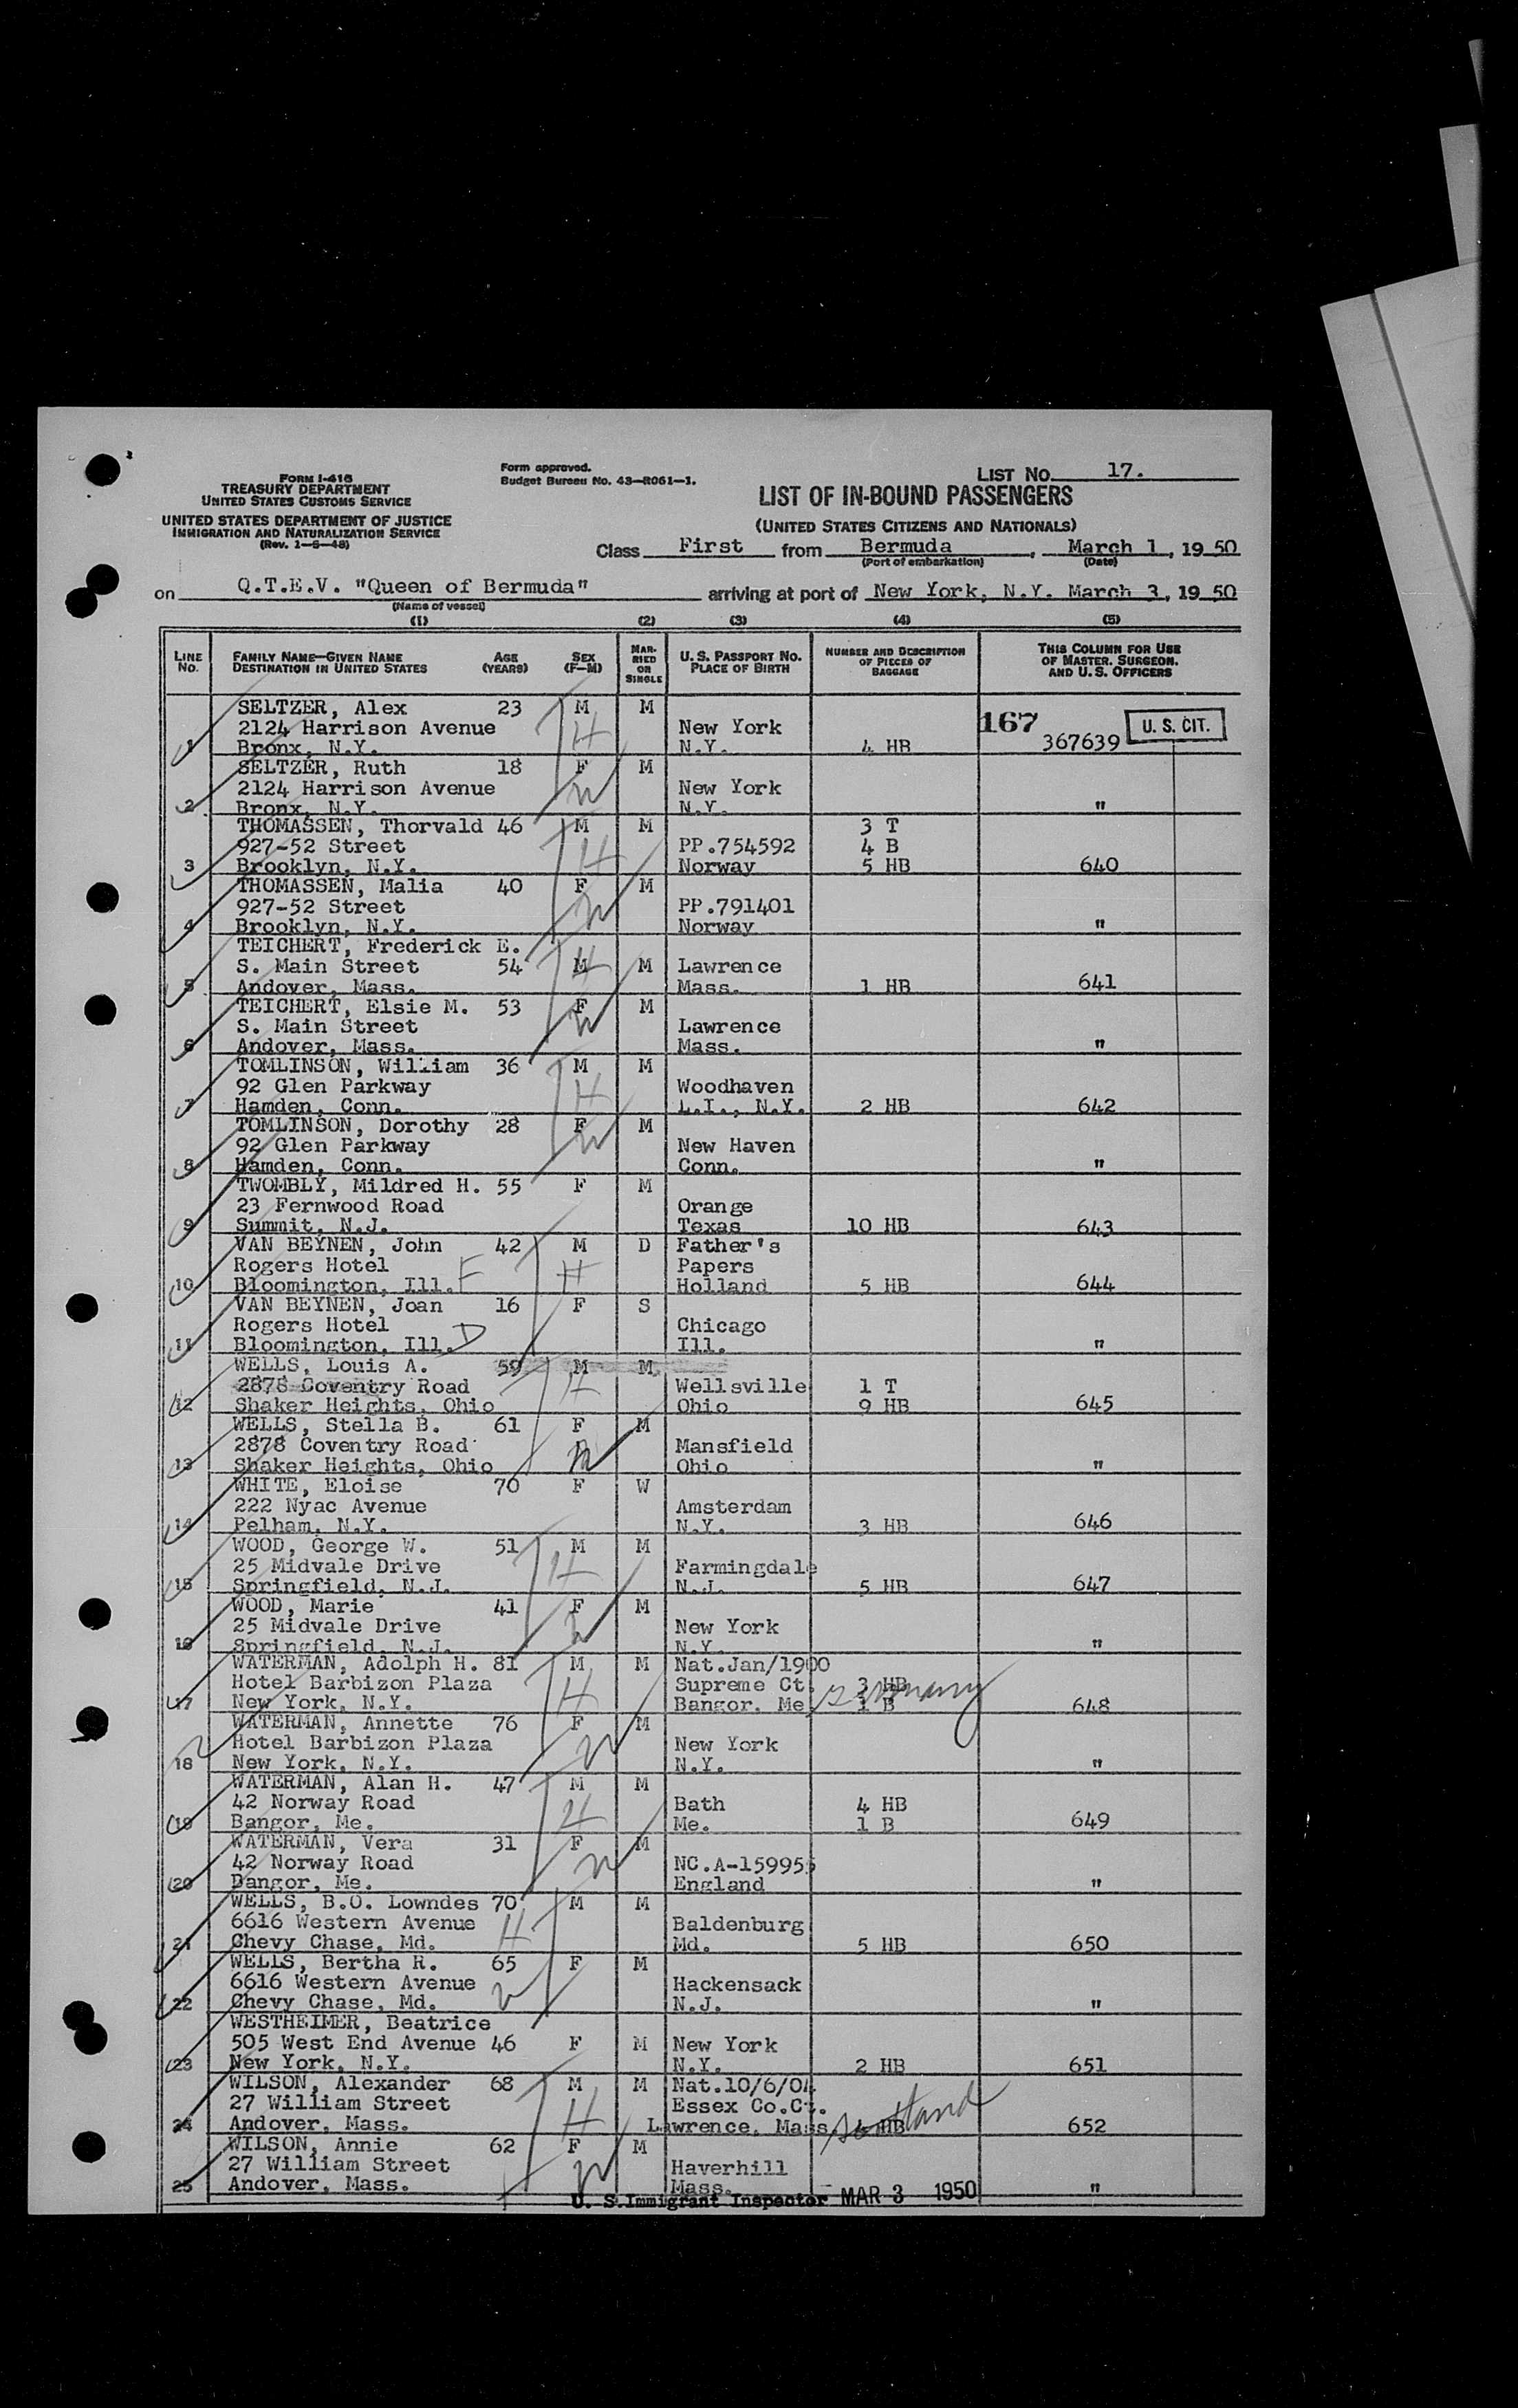 FORM I-416
TREASURY DEPARTMENT
UNITED STATES CUSTOMS SERVICE
UNITED STATES DEPARTMENT OF JUSTICE
IMMIGRATION AND NATURALIZATION SERVICE
(Rev. 1-5-48)
Form approved.
Budget Bureau No. 43-R061-1.
LIST NO. 17.
LIST OF IN-BOUND PASSENGERS
(UNITED STATES CITIZENS AND NATIONALS)
Class First from Bermuda, March 1, 1950
(Port of embarkation) (Date)
on Q.T.E.V. "Queen of Bermuda" arriving at port of New York, N.Y. March 3, 1950
(Name of vessel)
(1) (2) (3) (4) (5)
LINE NO. FAMILY NAME—GIVEN NAME DESTINATION IN UNITED STATES AGE (YEARS) SEX (F—M) MARRIED OR SINGLE U. S. PASSPORT NO. PLACE OF BIRTH NUMBER AND DESCRIPTION OF PIECES OF BAGGAGE THIS COLUMN FOR USE OF MASTER, SURGEON, AND U. S. OFFICERS
SELTZER, Alex 23 M M
2124 Harrison Avenue H New York 167 U. S. CIT.
1 Bronx, N.Y. N.Y. 4 HB 367639
SELTZER, Ruth 18 F M
2124 Harrison Avenue W New York
2 Bronx, N.Y. N.Y. "
THOMASSEN, Thorvald 46 M M 3 T
927-52 Street H PP.754592 4 B
3 Brooklyn, N.Y. Norway 5 HB 640
THOMASSEN, Malia 40 F M
927-52 Street W PP.791401
4 Brooklyn, N.Y. Norway "
TEICHERT, Frederick E.
S. Main Street 54 M M Lawrence
5 Andover, Mass. H Mass. 1 HB 641
TEICHERT, Elsie M. 53 F M
S. Main Street W Lawrence
6 Andover, Mass. Mass. "
TOMLINSON, William 36 M M
92 Glen Parkway H Woodhaven
7 Hamden, Conn. L.I., N.Y. 2 HB 642
TOMLINSON, Dorothy 28 F M
92 Glen Parkway W New Haven
8 Hamden, Conn. Conn. "
TWOMBLY, Mildred H. 55 F M
23 Fernwood Road Orange
9 Summit, N.J. Texas 10 HB 643
VAN BEYNEN, John 42 M D Father's
Rogers Hotel H Papers
10 Bloomington, Ill. F Holland 5 HB 644
VAN BEYNEN, Joan 16 F S
Rogers Hotel Chicago
11 Bloomington, Ill. D Ill. "
WELLS, Louis A. 59 M M
2878 Coventry Road H Wellsville 1 T
12 Shaker Heights, Ohio Ohio 9 HB 645
WELLS, Stella B. 61 F M
2878 Coventry Road W Mansfield
13 Shaker Heights, Ohio Ohio "
WHITE, Eloise 70 F W
222 Nyac Avenue Amsterdam
14 Pelham, N.Y. N.Y. 3 HB 646
WOOD, George W. 51 M M
25 Midvale Drive H Farmingdale
15 Springfield, N.J. N.J. 5 HB 647
WOOD, Marie 41 F M
25 Midvale Drive W New York
16 Springfield, N.J. N.Y. "
WATERMAN, Adolph H. 81 M M Nat.Jan/1900
Hotel Barbizon Plaza H Supreme Ct. 3 HB Germany
17 New York, N.Y. Bangor, Me. 1 B 648
WATERMAN, Annette 76 F M
Hotel Barbizon Plaza W New York
18 New York, N.Y. N.Y. "
WATERMAN, Alan H. 47 M M
42 Norway Road H Bath 4 HB
19 Bangor, Me. Me. 1 B 649
WATERMAN, Vera 31 F M
42 Norway Road W NC.A-159955
20 Bangor, Me. England "
WELLS, B.O. Lowndes 70 M M
6616 Western Avenue H Baldenburg
21 Chevy Chase, Md. Md. 5 HB 650
WELLS, Bertha R. 65 F M
6616 Western Avenue W Hackensack
22 Chevy Chase, Md. N.J. "
WESTHEIMER, Beatrice
505 West End Avenue 46 F M New York
23 New York, N.Y. N.Y. 2 HB 651
WILSON, Alexander 68 M M Nat.10/6/04
27 William Street H Essex Co.Ct. Scotland
24 Andover, Mass. Lawrence, Mass. 4 HB 652
WILSON, Annie 62 F M
27 William Street W Haverhill
25 Andover, Mass. Mass. "
U. S. Immigrant Inspector MAR 3 1950